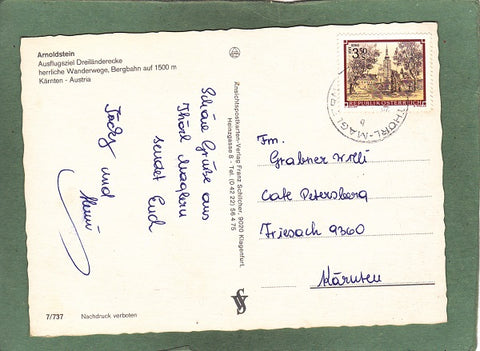 Arnoldstein
Ausflugsziel Dreiländerecke
herrliche Wanderwege, Bergbahn auf 1500 m
Kärnten - Austria
Schöne Grüße aus
Thörl Maglern
sendet Euch
und
7/737 Nachdruck verboten
Ansichtspostkarten-Verlag Franz Schilcher, 9020 Klagenfurt,
Heinzgasse 8 - Tel. (0 42 22) 56 4 75
3.50
REPUBLIK ÖSTERREICH
THÖRL-MAGL
Fm.
Grabner Willi
Cafe Petersberg
Friesach 9360
Kärnten